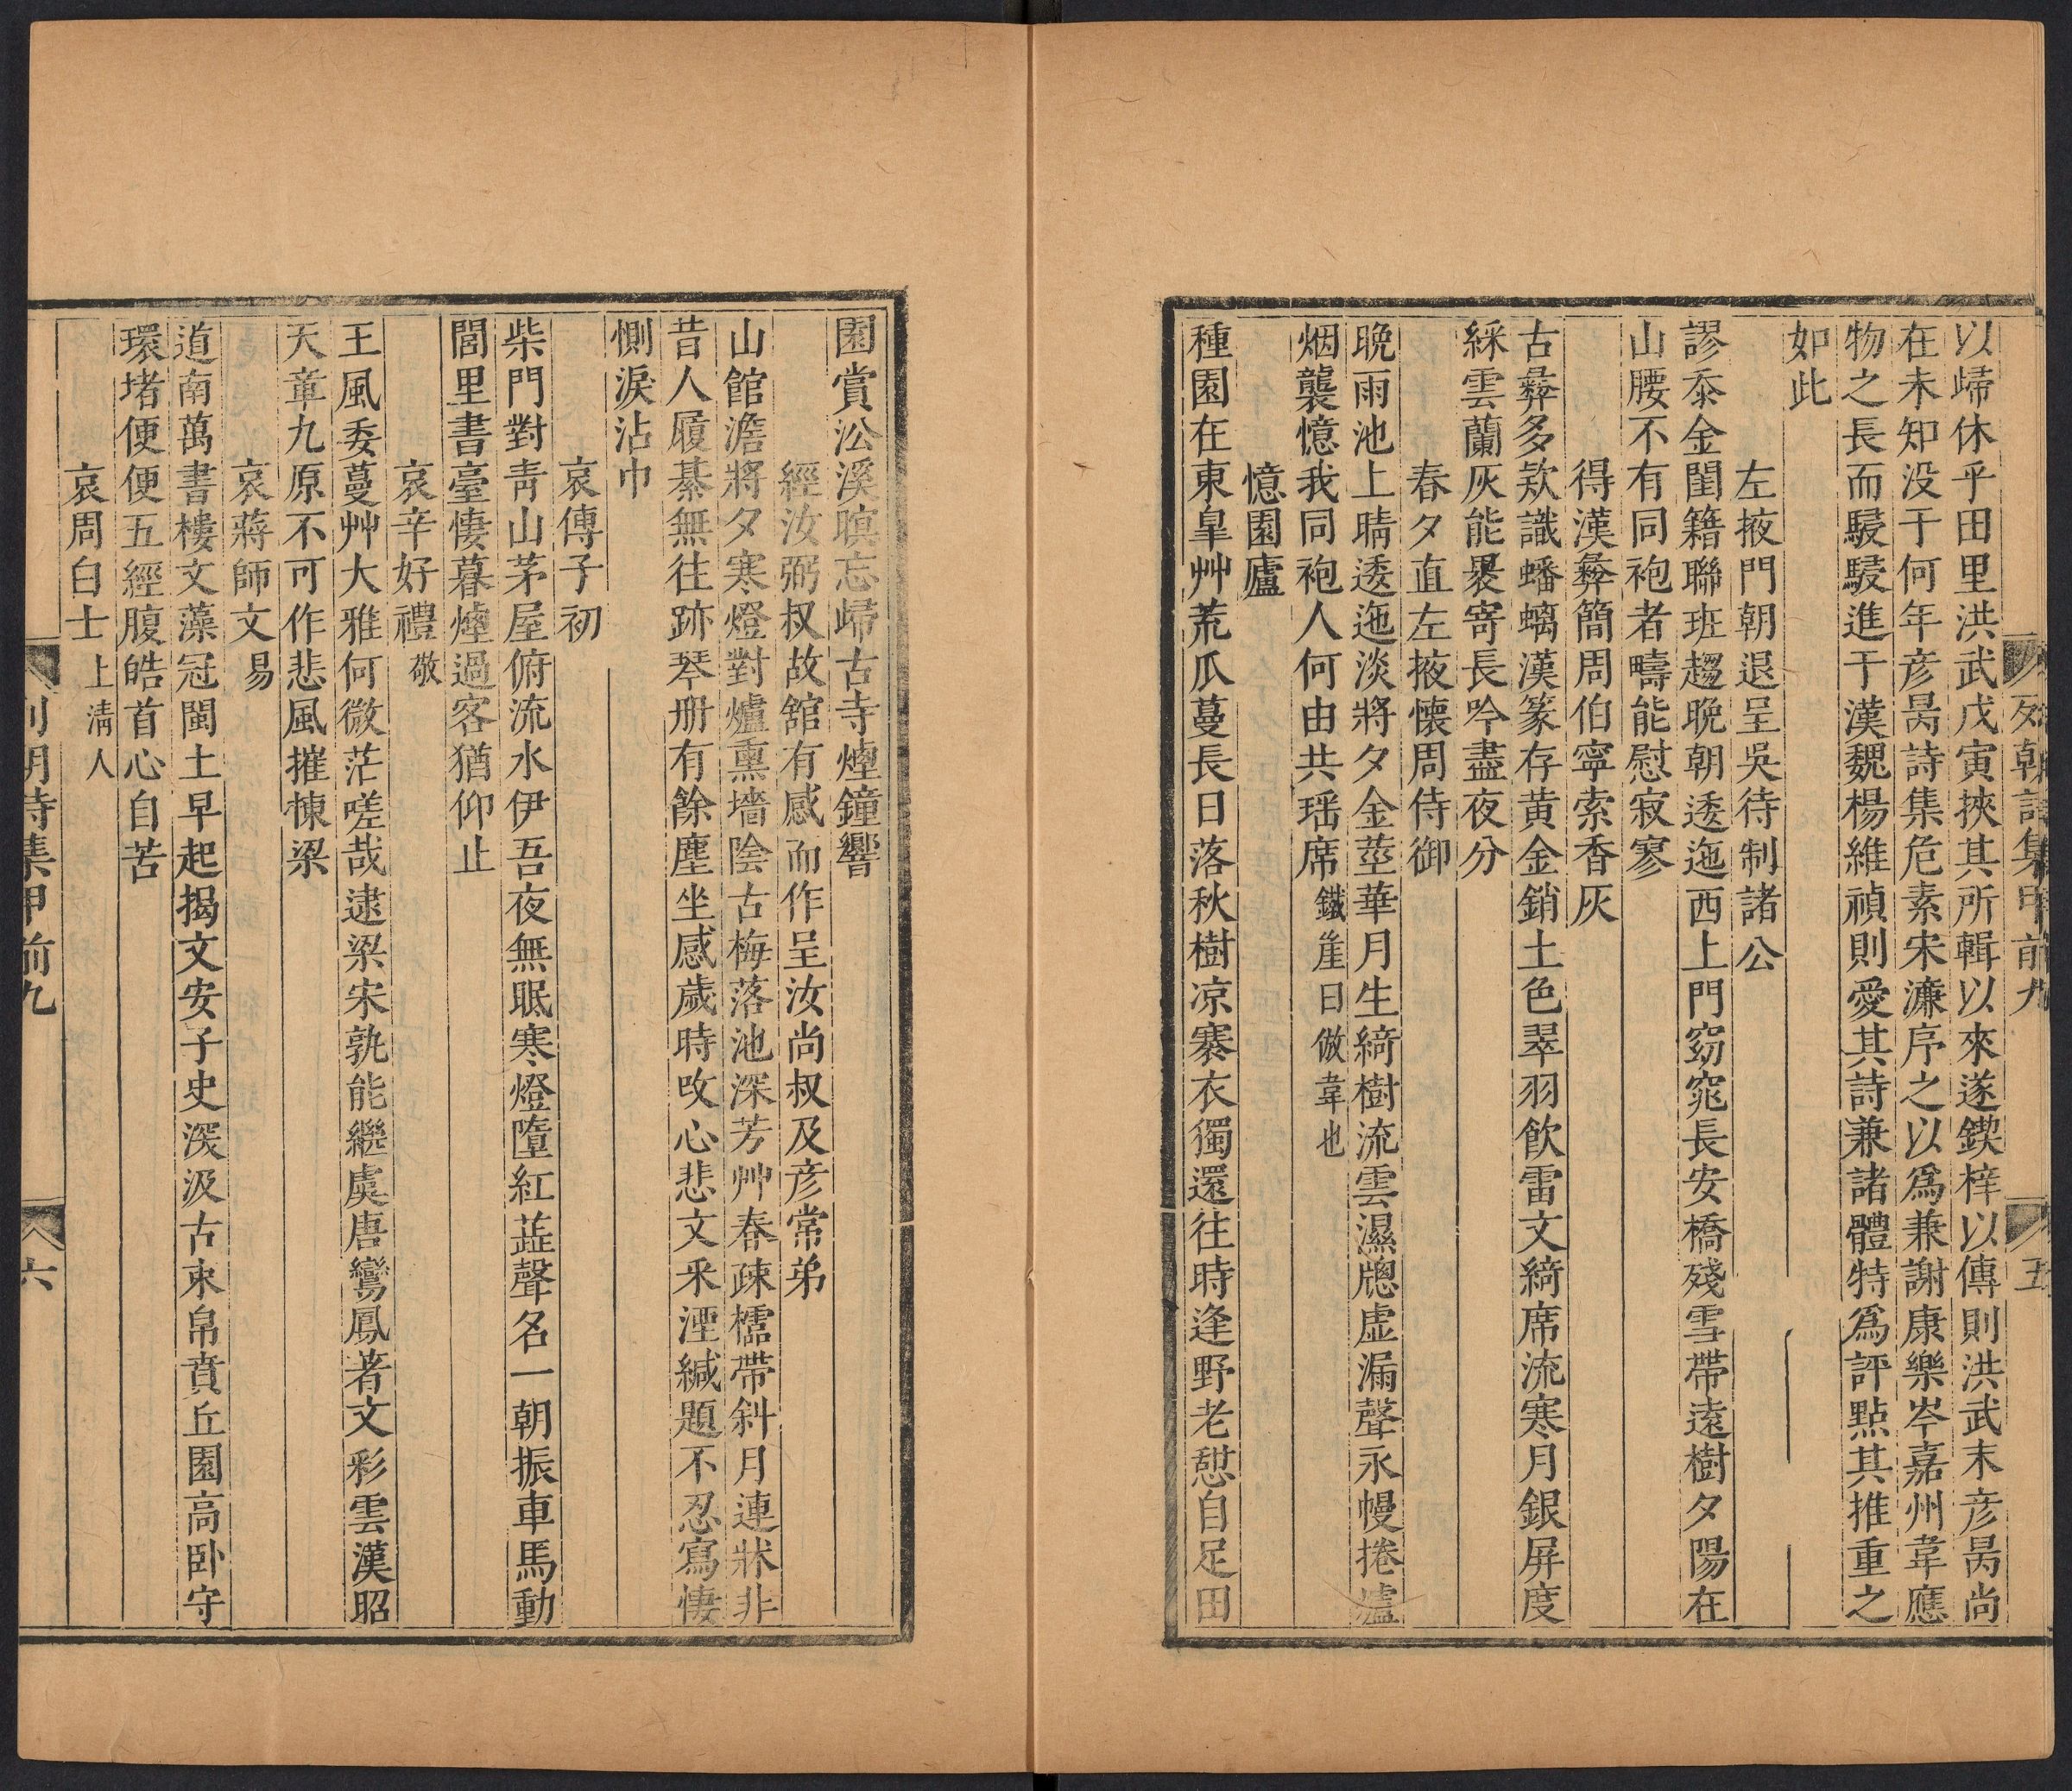 列朝詩集甲前九
五
以歸休乎田里洪武戊寅挾其所輯以來遂鍥梓以傳則洪武末彦昺尚
在未知没于何年彦昺詩集危素宋濂序之以爲兼謝康樂岑嘉州韋應
物之長而駸駸進于漢魏楊維禎則愛其詩兼諸體特爲評點其推重之
如此
左掖門朝退呈吳待制諸公
謬忝金閨籍聯班趨晩朝逶迤西上門窈窕長安橋殘雪帶遠樹夕陽在
山腰不有同袍者疇能慰寂寥
得漢彝簡周伯寧索香灰
古彝多欵識蟠螭漢篆存黄金銷土色翠羽飲雷文綺席流寒月銀屏度
綵雲蘭灰能褁寄長吟盡夜分
春夕直左掖懷周侍御
晩雨池上晴逶迤淡將夕金莖華月生綺樹流雲濕牕虚漏聲永幔捲爐
烟襲憶我同袍人何由共瑶席鐵崖曰倣韋也
憶園廬
種園在東皐艸荒瓜蔓長日落秋樹凉褰衣獨還往時逢野老憇自足田
園賞汾溪瞑忘歸古寺煙鐘響
經汝弼叔故舘有感而作呈汝尚叔及彦常弟
山館澹將夕寒燈對爐熏墻陰古梅落池深芳艸春疎櫺帶斜月連牀非
昔人履綦無往跡琴册有餘塵坐感歲時改心悲文采湮緘題不忍寫悽
惻淚沾巾
哀傅子初
柴門對靑山茅屋俯流水伊吾夜無眠寒燈墮紅蕋聲名一朝振車馬動
閭里書臺悽暮煙過客猶仰止
哀辛好禮敬
王風委蔓艸大雅何微茫嗟哉逮梁宋孰能繼虞唐鸞鳳著文彩雲漢昭
天章九原不可作悲風摧棟梁
哀蔣師文易
道南萬書樓文藻冠閩土早起揭文安子史深汲古束帛賁丘園高卧守
環堵便便五經腹皓首心自苦
哀周白士上淸人
列朝詩集甲前九
六